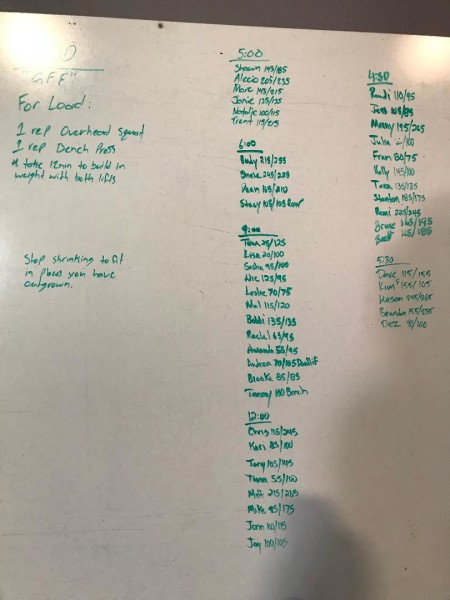 GFF"
For Load:
1 rep Overhead Squat
1 rep Bench Press
* take 12min to build in
weight with both lifts
Stop shrinking to fit
in places you have
outgrown.
5:00
Shawn 145/185
Alecia 205/235
Marc 145/215
Janie 135/135
Natalie 100/115
Trent 115/275
6:00
Rudy 215/255
Snake 245/225
Dean 165/210
Stacy 105/105 Row
9:00
Tana 25/125
Lisa 20/100
Sasha 95/100
Nic 125/95
Leslie 70/75
Mal 115/120
Bobbi 135/135
Rachel 65/95
Amanda 55/95
Andrea 70/105 Deadlift
Brooke 85/85
Tammy 100 Bench
12:00
Chris 115/245
Kari 85/100
Tony 105/145
Tiana 55/100
Matt 215/265
Mike 95/175
Jorn 110/115
Jay 100/105
4:30
Randi 110/95
Jess 105/85
Manny 195/205
Julia /100
Fran 80/75
Kelly 145/100
Tara 135/135
Shanton 185/175
Remi 225/245
Bruce 165/195
Brett 165/185
5:30
Dave 115/155
Kim 155/105
Mason 245/265
Brandon 155/235
Dez 90/100